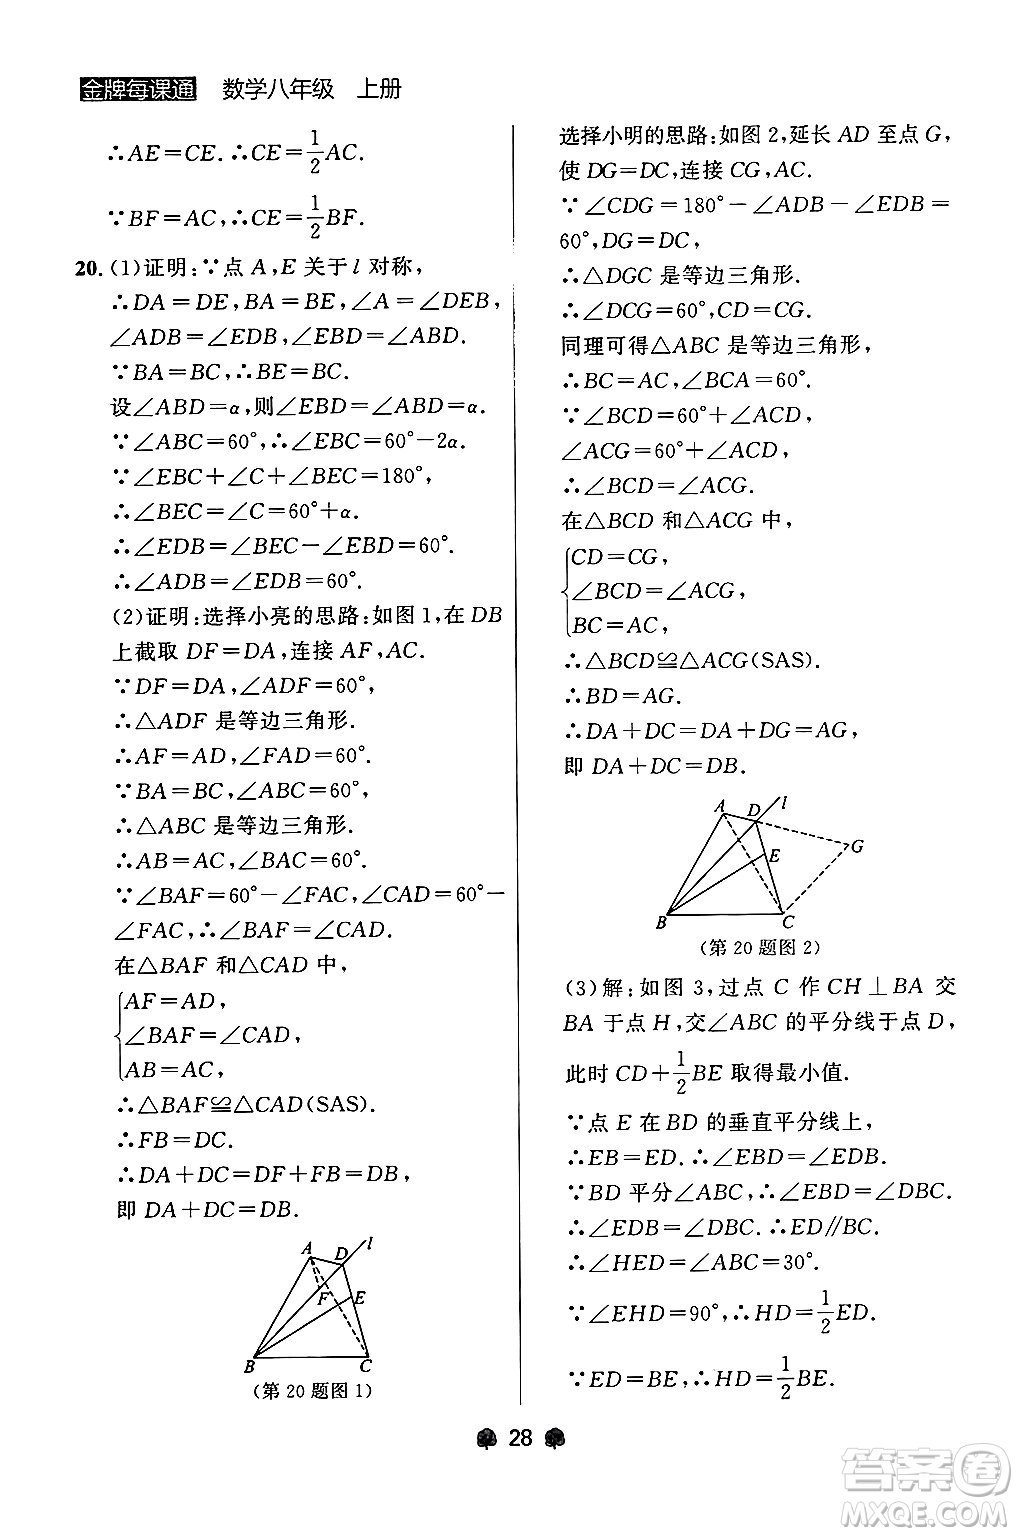 金牌每课通 数学八年级 上册
∴AE=CE.∴CE=1/2AC.
∵BF=AC,∴CE=1/2BF.
20.(1)证明:∵点A,E关于l对称,
∴DA=DE,BA=BE,∠A=∠DEB,
∠ADB=∠EDB,∠EBD=∠ABD.
∵BA=BC,∴BE=BC.
设∠ABD=α,则∠EBD=∠ABD=α.
∵∠ABC=60°,∴∠EBC=60°-2α.
∵∠EBC+∠C+∠BEC=180°,
∴∠BEC=∠C=60°+α.
∴∠EDB=∠BEC-∠EBD=60°.
∴∠ADB=∠EDB=60°.
(2)证明:选择小亮的思路:如图1,在DB
上截取DF=DA,连接AF,AC.
∵DF=DA,∠ADF=60°,
∴△ADF是等边三角形.
∴AF=AD,∠FAD=60°.
∵BA=BC,∠ABC=60°,
∴△ABC是等边三角形.
∴AB=AC,∠BAC=60°.
∵∠BAF=60°-∠FAC,∠CAD=60°-
∠FAC,∴∠BAF=∠CAD.
在△BAF和△CAD中,
AF=AD,
∠BAF=∠CAD,
AB=AC,
∴△BAF≌△CAD(SAS).
∴FB=DC.
∴DA+DC=DF+FB=DB,
即DA+DC=DB.
A D l
F E
B C
(第20题图1)
选择小明的思路:如图2,延长AD至点G,
使DG=DC,连接CG,AC.
∵∠CDG=180°-∠ADB-∠EDB=
60°,DG=DC,
∴△DGC是等边三角形.
∴∠DCG=60°,CD=CG.
同理可得△ABC是等边三角形,
∴BC=AC,∠BCA=60°.
∵∠BCD=60°+∠ACD,
∠ACG=60°+∠ACD,
∴∠BCD=∠ACG.
在△BCD和△ACG中,
CD=CG,
∠BCD=∠ACG,
BC=AC,
∴△BCD≌△ACG(SAS).
∴BD=AG.
∴DA+DC=DA+DG=AG,
即DA+DC=DB.
A D l
E G
B C
(第20题图2)
(3)解:如图3,过点C作CH⊥BA交
BA于点H,交∠ABC的平分线于点D,
此时CD+1/2BE取得最小值.
∵点E在BD的垂直平分线上,
∴EB=ED.∴∠EBD=∠EDB.
∵BD平分∠ABC,∴∠EBD=∠DBC.
∴∠EDB=∠DBC.∴ED∥BC.
∴∠HED=∠ABC=30°.
∵∠EHD=90°,∴HD=1/2ED.
∵ED=BE,∴HD=1/2BE.
28
答案圈
MXQE.COM